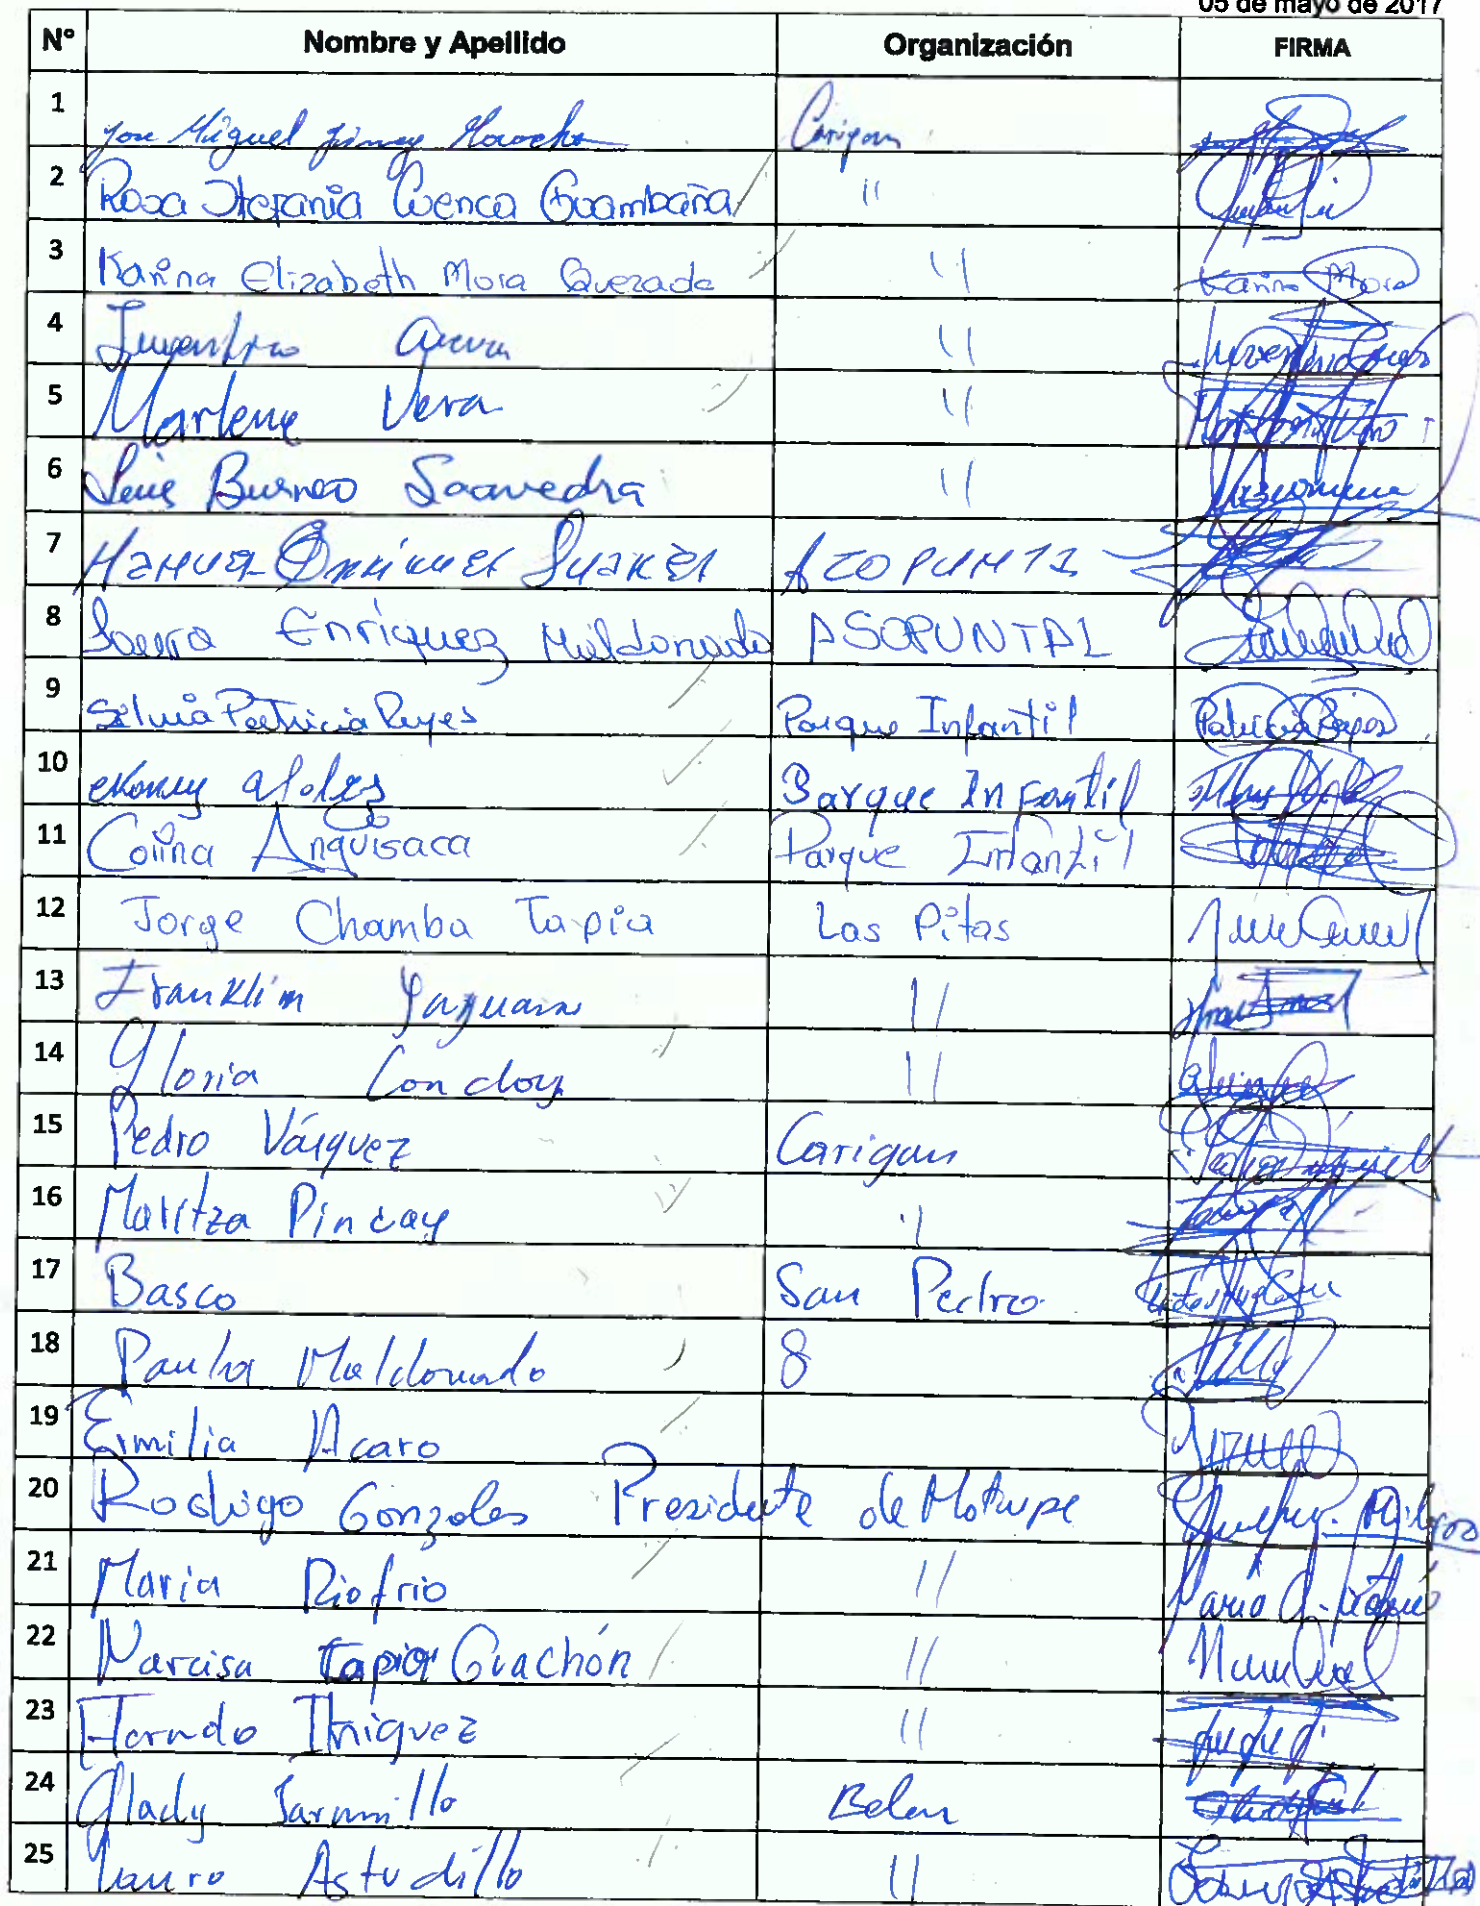 05 de mayo de 2017
N° Nombre y Apellido Organización FIRMA
1 Jose Miguel Jimenez Morocho Carigan
2 Rosa Stefania Cuenca Guambaña "
3 Karina Elizabeth Mora Quezada " Karina Mora
4 "
5 Marlene Vera "
6 Luis Burneo Saavedra "
7 Manuel Enriquez Suarez
8 Enriquez Maldonado ASOPUNTAL
9 Silvia Patricia Reyes Parque Infantil Patricia Reyes
10 Parque Infantil
11 Corina Anguisaca Parque Infantil
12 Jorge Chamba Tapia Las Pitas
13 Franklim "
14 Gloria Condoy "
15 Pedro Vásquez Carigan
16 Maritza Pincay "
17 Basco San Pedro
18 Paula Maldonado 8
19 Ermilia Acaro
20 Rodrigo Gonzales Presidente de Motupe
21 Maria Riofrio "
22 Narcisa tapia Guachón "
23 Iñiguez "
24 Glady Jaramillo Belen
25 Lauro Astudillo "